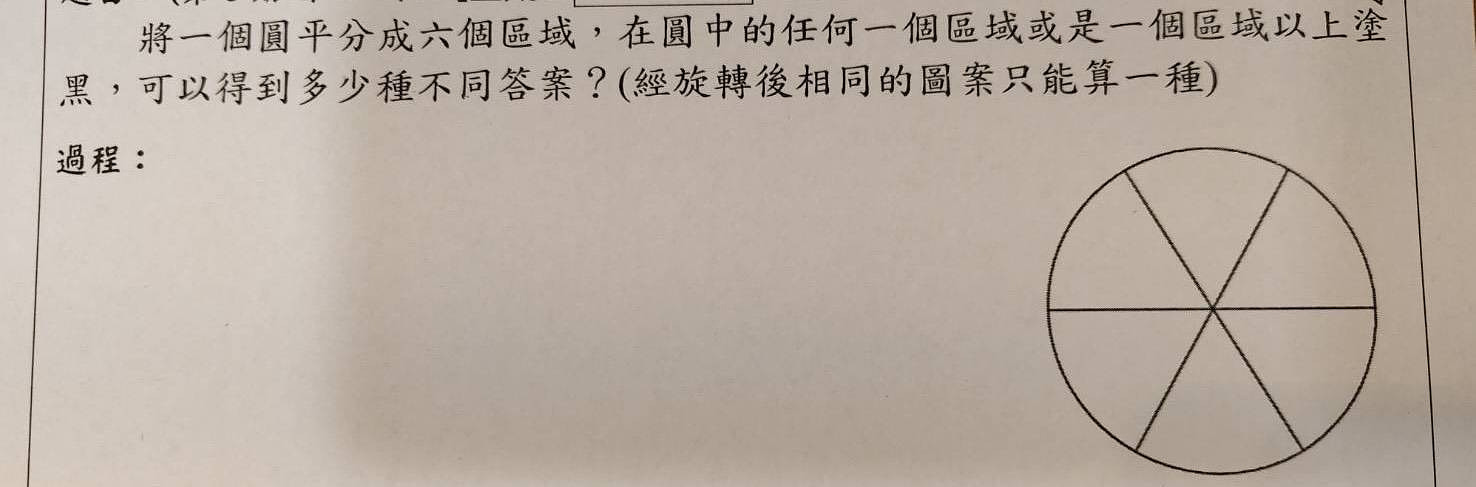 將一個圓平分成六個區域，在圓中的任何一個區域或是一個區域以上塗
黑，可以得到多少種不同答案？(經旋轉後相同的圖案只能算一種)
過程：